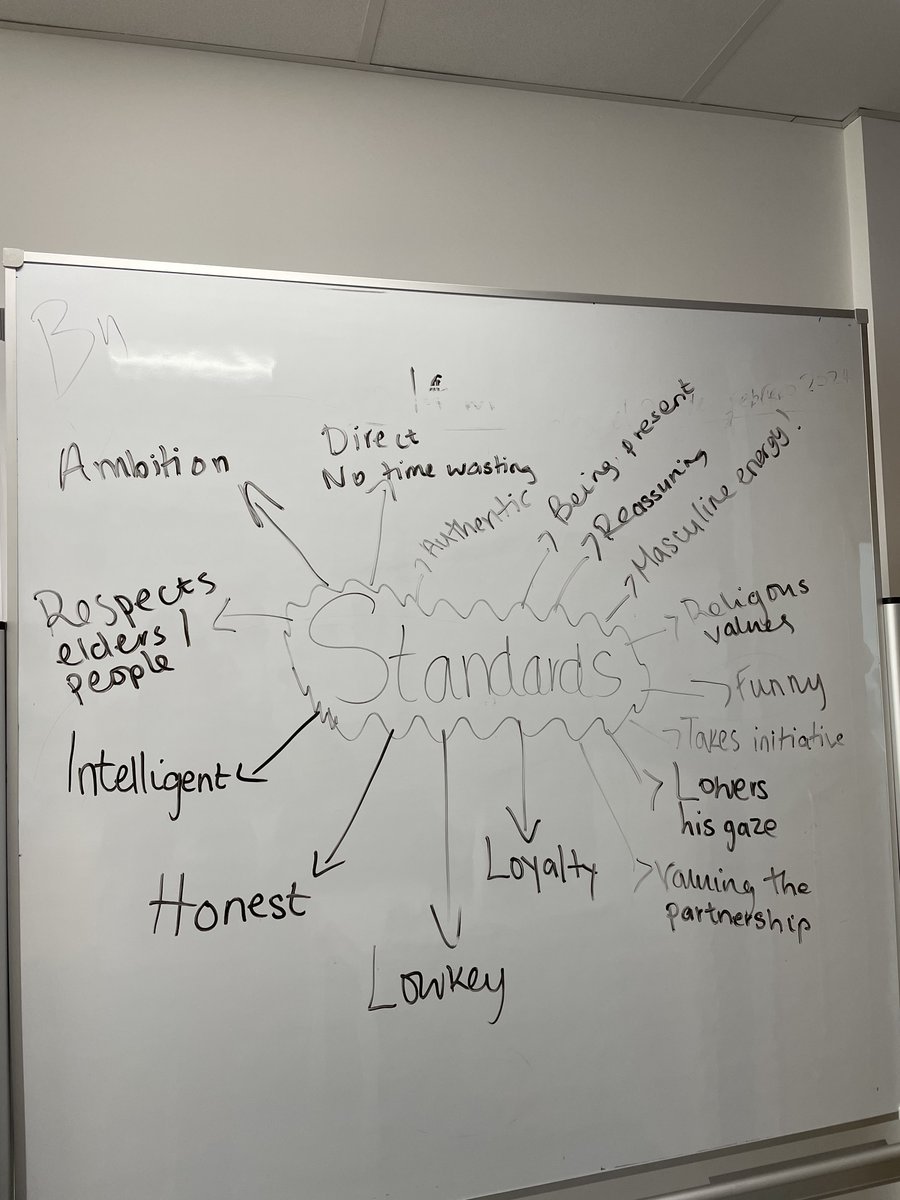 By
Ambition
Direct
No time wasting
Authentic
Being present
Reassuring
Masculine energy!
Respects
elders /
people
Standards
Religous
values
Funny
Takes initiative
Intelligent
Lowers
his gaze
Honest
Loyalty
Valuing the
partnership
Lowkey